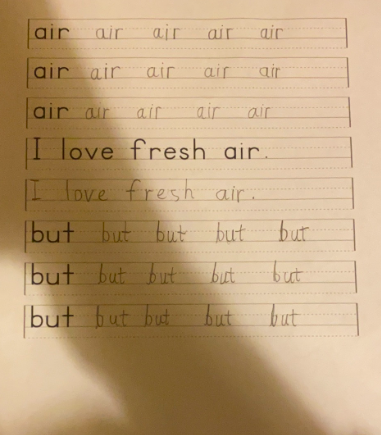 air air air air air
air air air air air
air air air air air
I love fresh air.
I love fresh air.
but but but but but
but but but but but
but but but but but